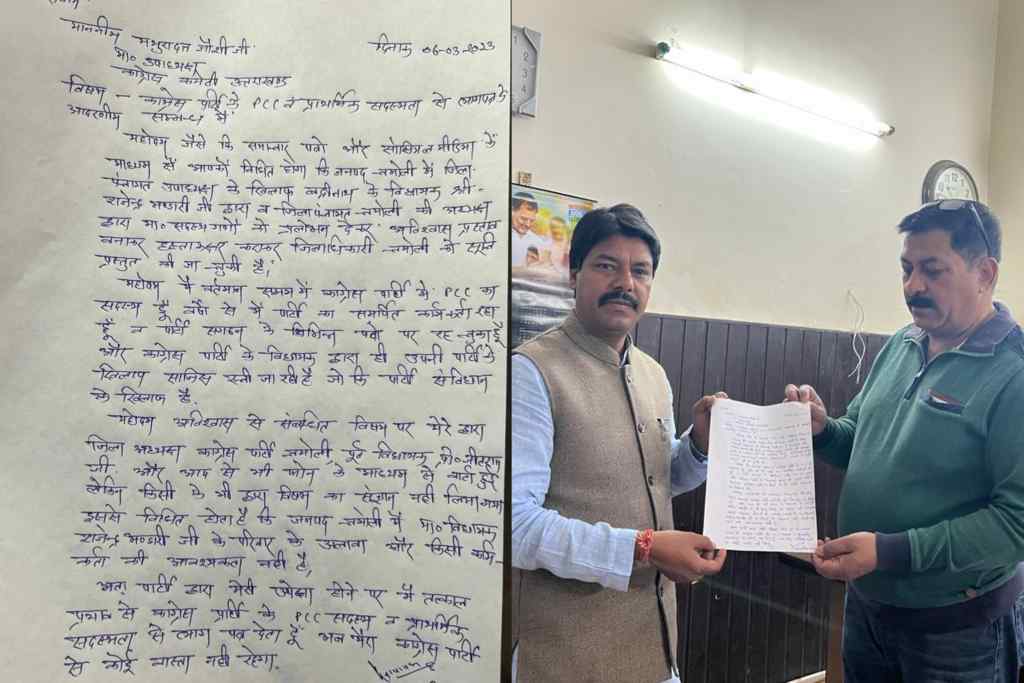 माननीय मथुरादत्त जोशी जी दिनांक 06-03-2023
मा० उपाध्यक्ष
कांग्रेस कमेटी उत्तराखण्ड
विषय - कांग्रेस पार्टी के PCC व प्राथमिक सदस्यता से त्यागपत्र के
आदरणीय सम्बन्ध में
महोदय जैसे कि समाचार पत्रो और सोशियल मीडिया के
माध्यम से आपको विदित होगा कि जनपद चमोली में जिला
पंचायत उपाध्यक्ष के खिलाफ बद्रीनाथ के विधायक श्री
राजेन्द्र भण्डारी जी द्वारा व जिला पंचायत चमोली की अध्यक्ष
द्वारा मा० सदस्य गणों को प्रलोभन देकर अविश्वास प्रस्ताव
बनाकर हस्ताक्षर कराकर जिलाधिकारी चमोली को
प्रस्तुत की जा चुकी है,
महोदय मैं वर्तमान समय में कांग्रेस पार्टी में PCC का
सदस्य हूँ वर्षो से मैं पार्टी का समर्पित कार्यकर्ता रहा
हूँ व पार्टी संगठन के विभिन्न पदो पर रह चुका हूँ
और कांग्रेस पार्टी के विधायक द्वारा ही अपनी पार्टी के
खिलाप साजिस रची जा रही है जो कि पार्टी संविधान
के खिलाप है.
महोदय अविश्वास से संबंधित विषय पर मेरे द्वारा
जिला अध्यक्ष कांग्रेस पार्टी चमोली, पूर्व विधायक, प्रो० जीतराम
जी, और आप से भी फोन के माध्यम से वार्ता हुई
लेकिन किसी के भी द्वारा विषय का संज्ञान नही लिया गया
इससे विदित होता है कि जनपद चमोली में मा० विधायक
राजेन्द्र भण्डारी जी के परिवार के अलावा और किसी कार्य-
कर्ता की आवश्यकता नही है,
अतः पार्टी द्वारा मेरी उपेक्षा होने पर मैं तत्काल
प्रभाव से कांग्रेस पार्टी के PCC सदस्य व प्राथमिक
सदस्यता से त्याग पत्र देता हूँ अब मेरा कांग्रेस पार्टी
से कोई वास्ता नही रहेगा.